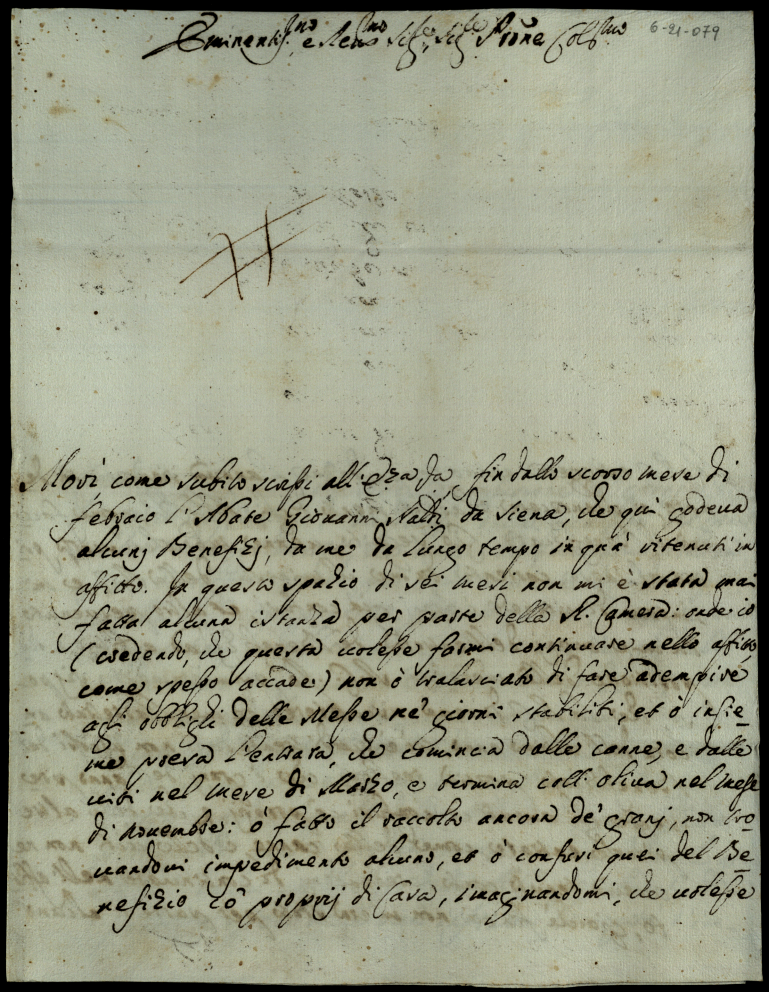 Eminentis.mo e Rev.mo Sig.e, Sig.e P'rone Col.mo
6-21-079
Morì, come subito scrissi all'Eza Va, fin dallo scorso mese di
febraio l'Abate Giovanni Naldi da Siena, che qui godeua
alcunj Benefizj, da me da lungo tempo in quà ritenuti in
affitto. In questo spazio di sei mesi non mi è stata mai
fatta alcuna istanza per parte della R. Camera: onde io
(credendo, che questa uolesse farmi continuare nello affitto,
come spesso accade) non ò tralasciato di fare adempire
agli obblighi delle Messe ne' giorni stabiliti, et ò insie=
me presa l'entrata, che comincia dalle canne, e dalle
uiti nel mese di Marzo, e termina coll'oliua nel mese
di nouembre: ò fatto il raccolto ancora de' granj, non tro=
uandoui impedimento alcuno, et ò confusi quei del Be=
nefizio co' proprij di Casa, imaginandomi, che uolesse